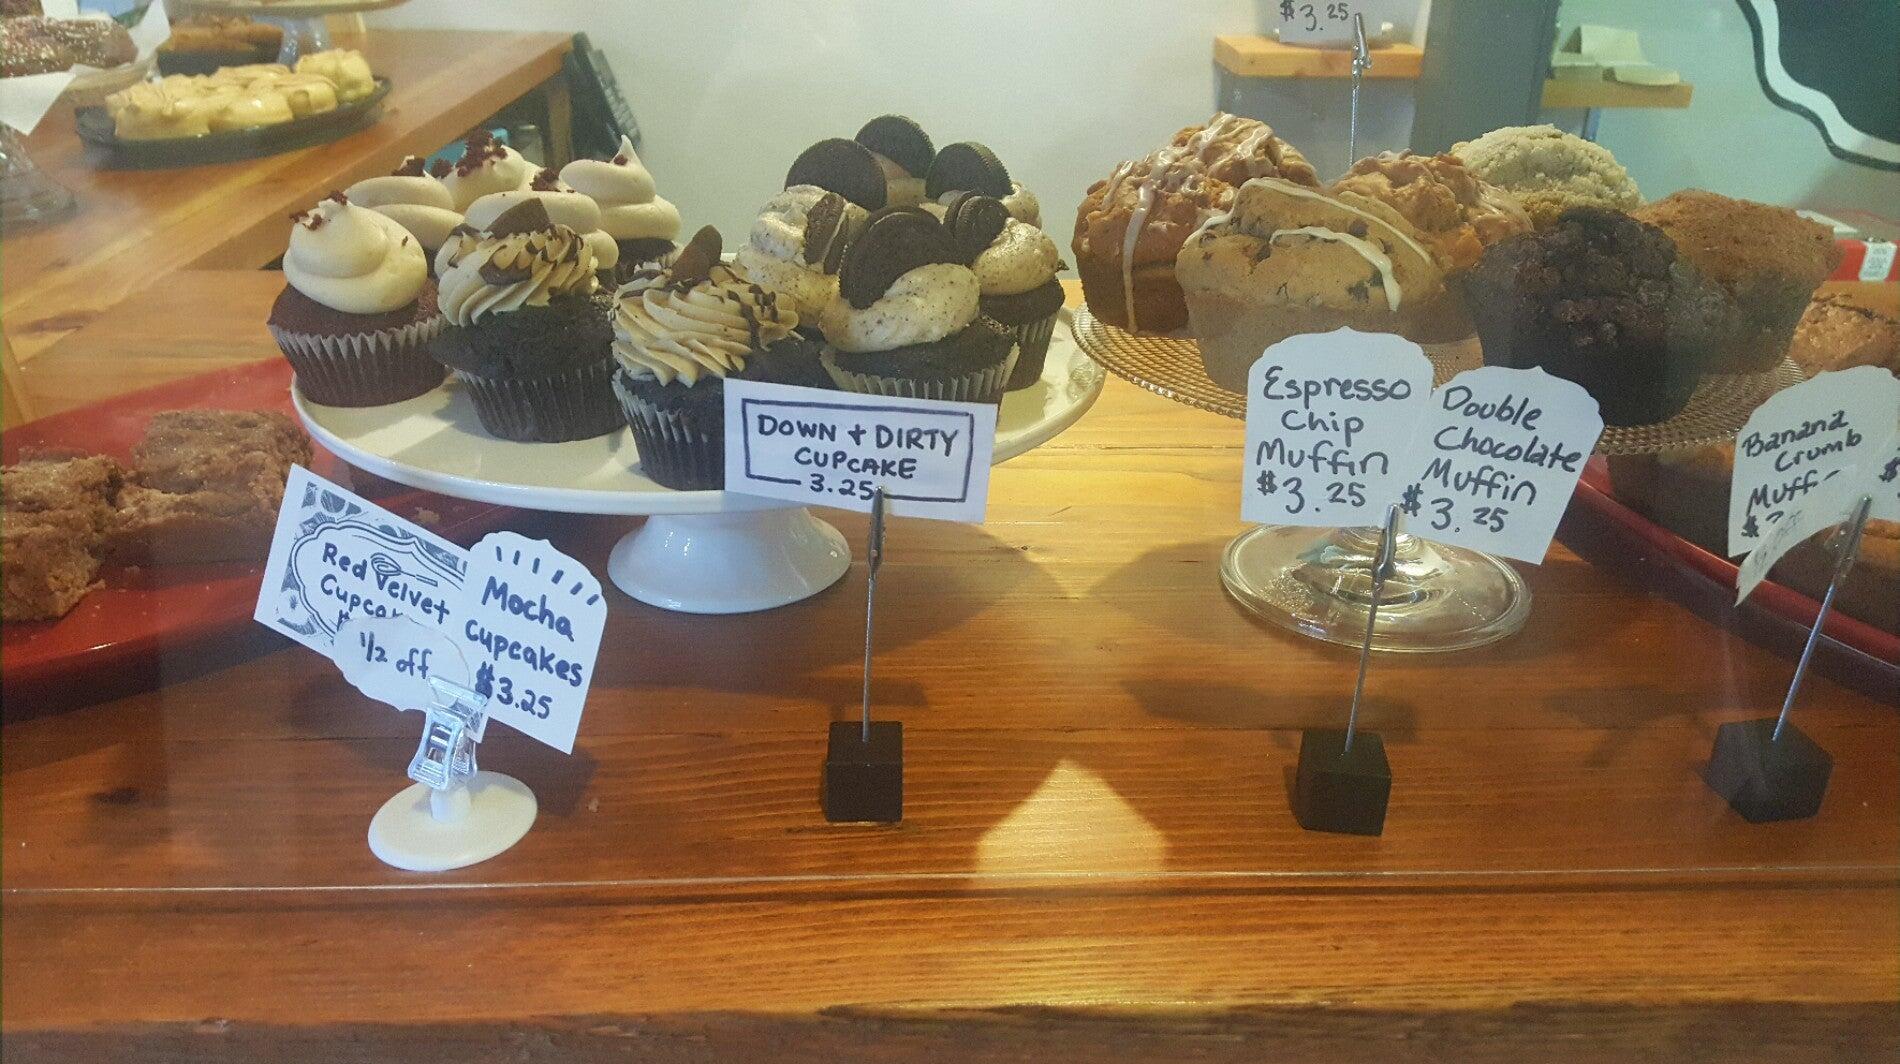 $3.25
Red Velvet
1/2 off
Mocha
cupcakes
$3.25
DOWN + DIRTY
CUPCAKE
3.25
Espresso
Chip
Muffin
$3.25
Double
Chocolate
Muffin
$3.25
Banana
Crumb